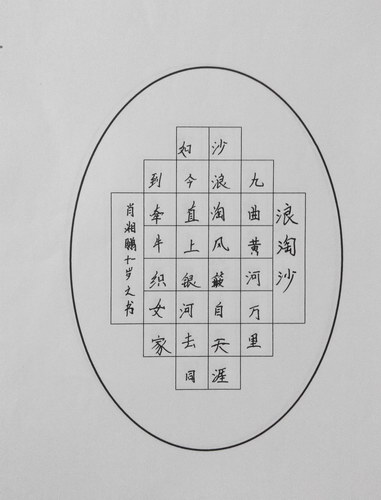 浪淘沙
九曲黄河万里
沙浪淘风簸自天涯
如今直上银河去同
到牵牛织女家
肖湘鹏十岁书